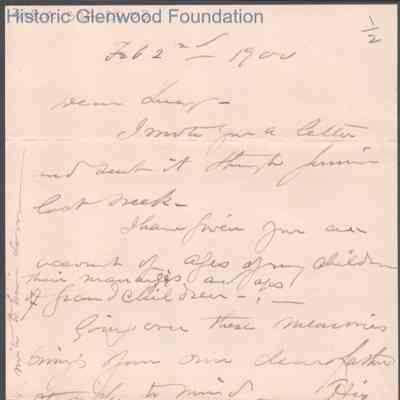 Historic Glenwood Foundation
1/2
Feb 2nd 1900
Dear Lucy -
I wrote you a letter
and sent it through Jennie
last week -
I have given you an
account of ages of my children
their marriages and ages
of Grandchildren - ; -
Going over these memories
brings your own dear father
to mind His